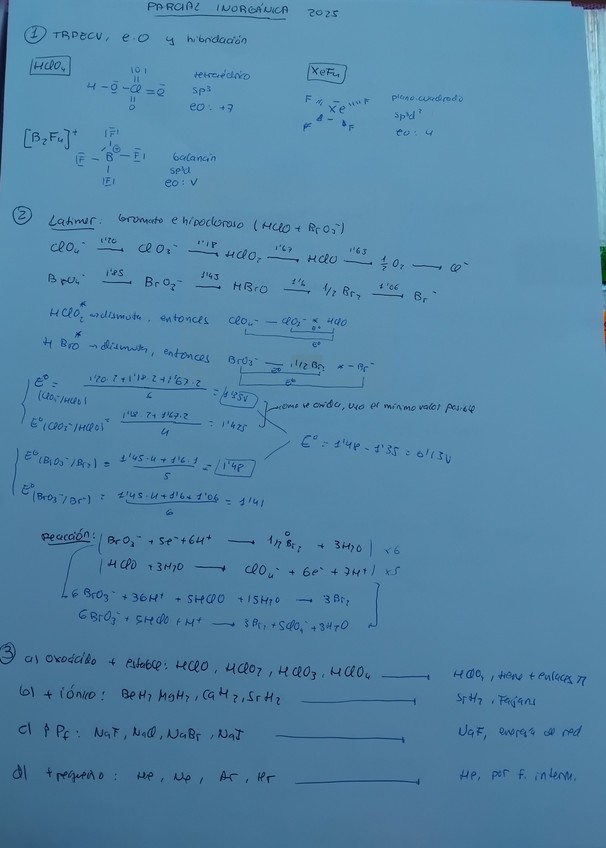 PARCIAL INORGÁNICA 2025
① TRPECV, e.O y hibridación
HClO₄
tetraédrico
sp³
eo: +7
H - O - Cl = O
XeF₄
plano cuadrado
sp³d²
eo: 4
F F
Xe
F F
[B₂F₄]⁺
F - B - F
balancín
sp³d
eo: V
② Latimer: bromato e hipocloroso (HClO + BrO₃⁻)
ClO₄⁻ —1'20→ ClO₃⁻ —1'18→ HClO₂ —1'67→ HClO —1'63→ ½ Cl₂ → Cl⁻
BrO₄⁻ —1'85→ BrO₃⁻ —1'45→ HBrO —1'6→ 1/2 Br₂ —1'06→ Br⁻
HClO₂* → dismuta, entonces ClO₄⁻ — ClO₃⁻ * HClO
E°
E°
HBrO* → dismuta, entonces BrO₃⁻ — 1/2 Br₂ * - Br⁻
E°
E°
E° (ClO₄⁻/HClO) = 1'20·2+1'18·2+1'67·2 / 6 = 1'35V
como se oxida, uso el mínimo valor posible
E°(ClO₃⁻/HClO) = 1'18·2+1'67·2 / 4 = 1'425
E° = 1'48 - 1'35 = 0'13V
E°(BrO₃⁻/Br₂) = 1'45·4+1'6·1 / 5 = 1'48
E°(BrO₃⁻/Br⁻) = 1'45·4+1'6+1'06 / 6 = 1'41
Reacción: BrO₃⁻ + 5e⁻ + 6H⁺ → 1/2 Br₂ + 3H₂O | x6
HClO + 3H₂O → ClO₄⁻ + 6e⁻ + 7H⁺ | x5
6BrO₃⁻ + 36H⁺ + 5HClO + 15H₂O → 3Br₂
6BrO₃⁻ + 5HClO + H⁺ → 3Br₂ + 5ClO₄⁻ + 3H₂O
③ a) oxoácido + estable: HClO, HClO₂, HClO₃, HClO₄ — HClO₄, tiene + enlaces π
b) + iónico: BeH₂, MgH₂, CaH₂, SrH₂ — SrH₂, Fajans
c) ↑ Pf: NaF, NaCl, NaBr, NaI — NaF, energía de red
d) + pequeño: He, Ne, Ar, Kr — He, por F. interm.